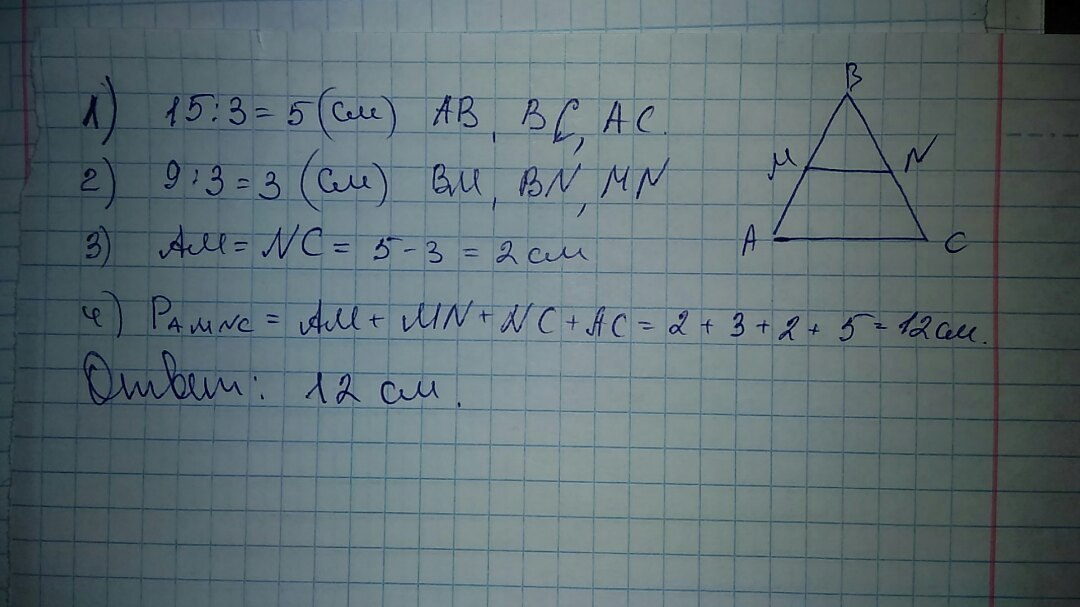 1) 15:3 = 5 (см) AB, BC, AC.
2) 9:3 = 3 (см) BM, BN, MN
3) AM = NC = 5 - 3 = 2 см
4) PAMNC = AM + MN + NC + AC = 2 + 3 + 2 + 5 = 12 см.
Ответ: 12 см.
B
M N
A C